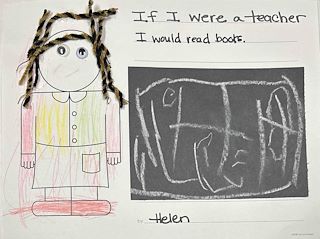 If I were a teacher
I would read books.
Helen